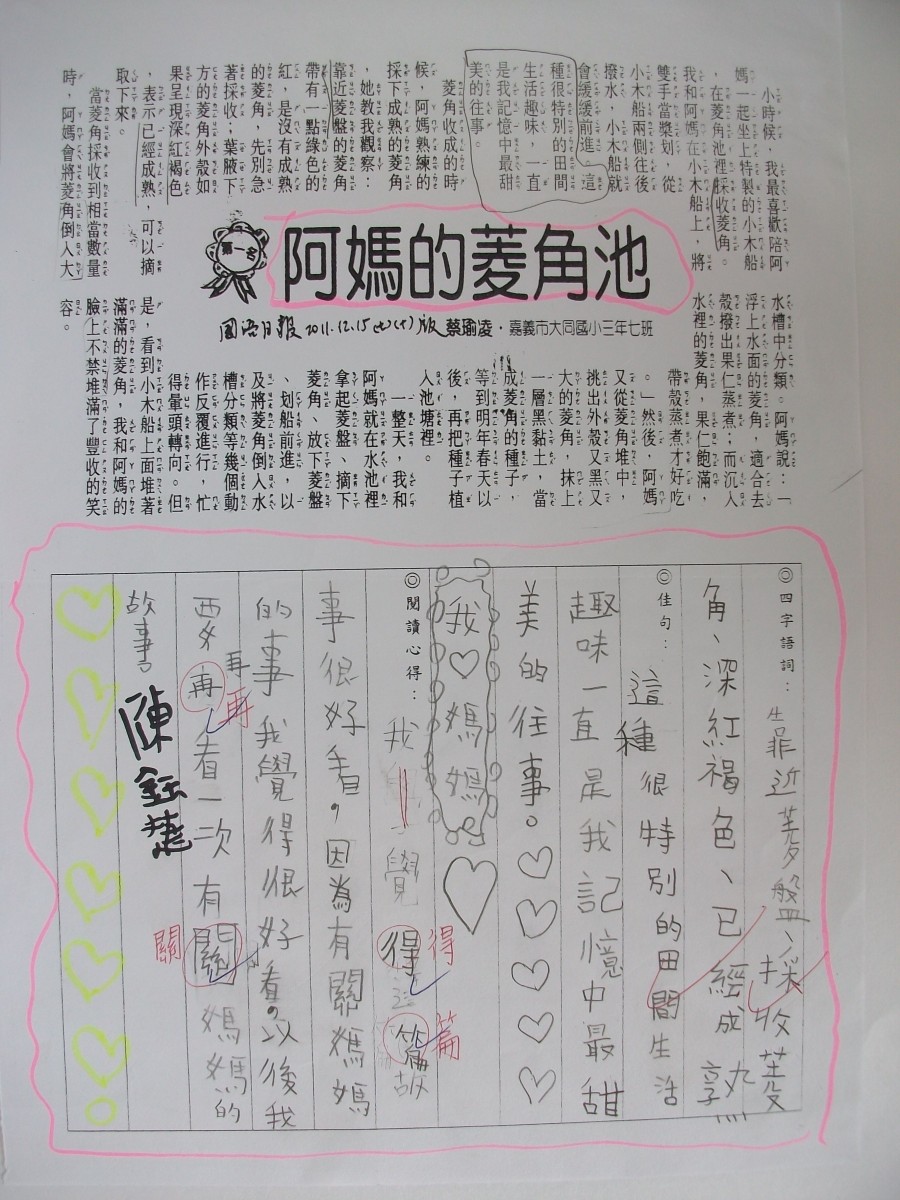 阿媽的菱角池
第一名
國語日報 2011.12.15(七)版
蔡瑜凌・嘉義市大同國小三年七班
小時候，我最喜歡陪阿
媽一起坐上特製的小木船
，在菱角池裡採收菱角。
我和阿媽在小木船上，將
雙手當槳划，從
小木船兩側往後
撥水，小木船就
會緩緩前進，這
種很特別的田間
生活趣味，一直
是我記憶中最甜
美的往事。
菱角收成的時
候，阿媽熟練的
採下成熟的菱角
，她教我觀察：
靠近菱盤的菱角
帶有一點綠色的
紅，是沒有成熟
的菱角，先別急
著採收；葉腋下
方的菱角外殼如
果呈現深紅褐色
，表示已經成熟，可以摘
取下來。
當菱角採收到相當數量
時，阿媽會將菱角倒入大
水槽中分類。阿媽說：「
浮上水面的菱角，適合去
殼撥出果仁蒸煮；而沉入
水裡的菱角，果仁飽滿，
帶殼蒸煮才好吃
。」然後，阿媽
又從菱角堆中，
挑出外殼又黑又
大的菱角，抹上
一層黑黏土，當
成菱角的種子，
等到明年春天以
後，再把種子植
入池塘裡。
一整天，我和
阿媽就在水池裡
拿起菱盤、摘下
菱角、放下菱盤
、划船前進，以
及將菱角倒入水
槽分類等幾個動
作反覆進行，忙
得暈頭轉向。但
是，看到小木船上面堆著
滿滿的菱角，我和阿媽的
臉上不禁堆滿了豐收的笑
容。
◎四字語詞：靠近菱盤、採收菱
角、深紅褐色、已經成熟
◎佳句：這種很特別的田間生活
趣味一直是我記憶中最甜
美的往事。
我♡媽媽
◎閱讀心得：我覺得這篇故
得
篇
事很好看，因為有關媽媽
的事我覺得很好看。以後我
要再看一次有關媽媽的
再
再
關
故事
陳鈺婕